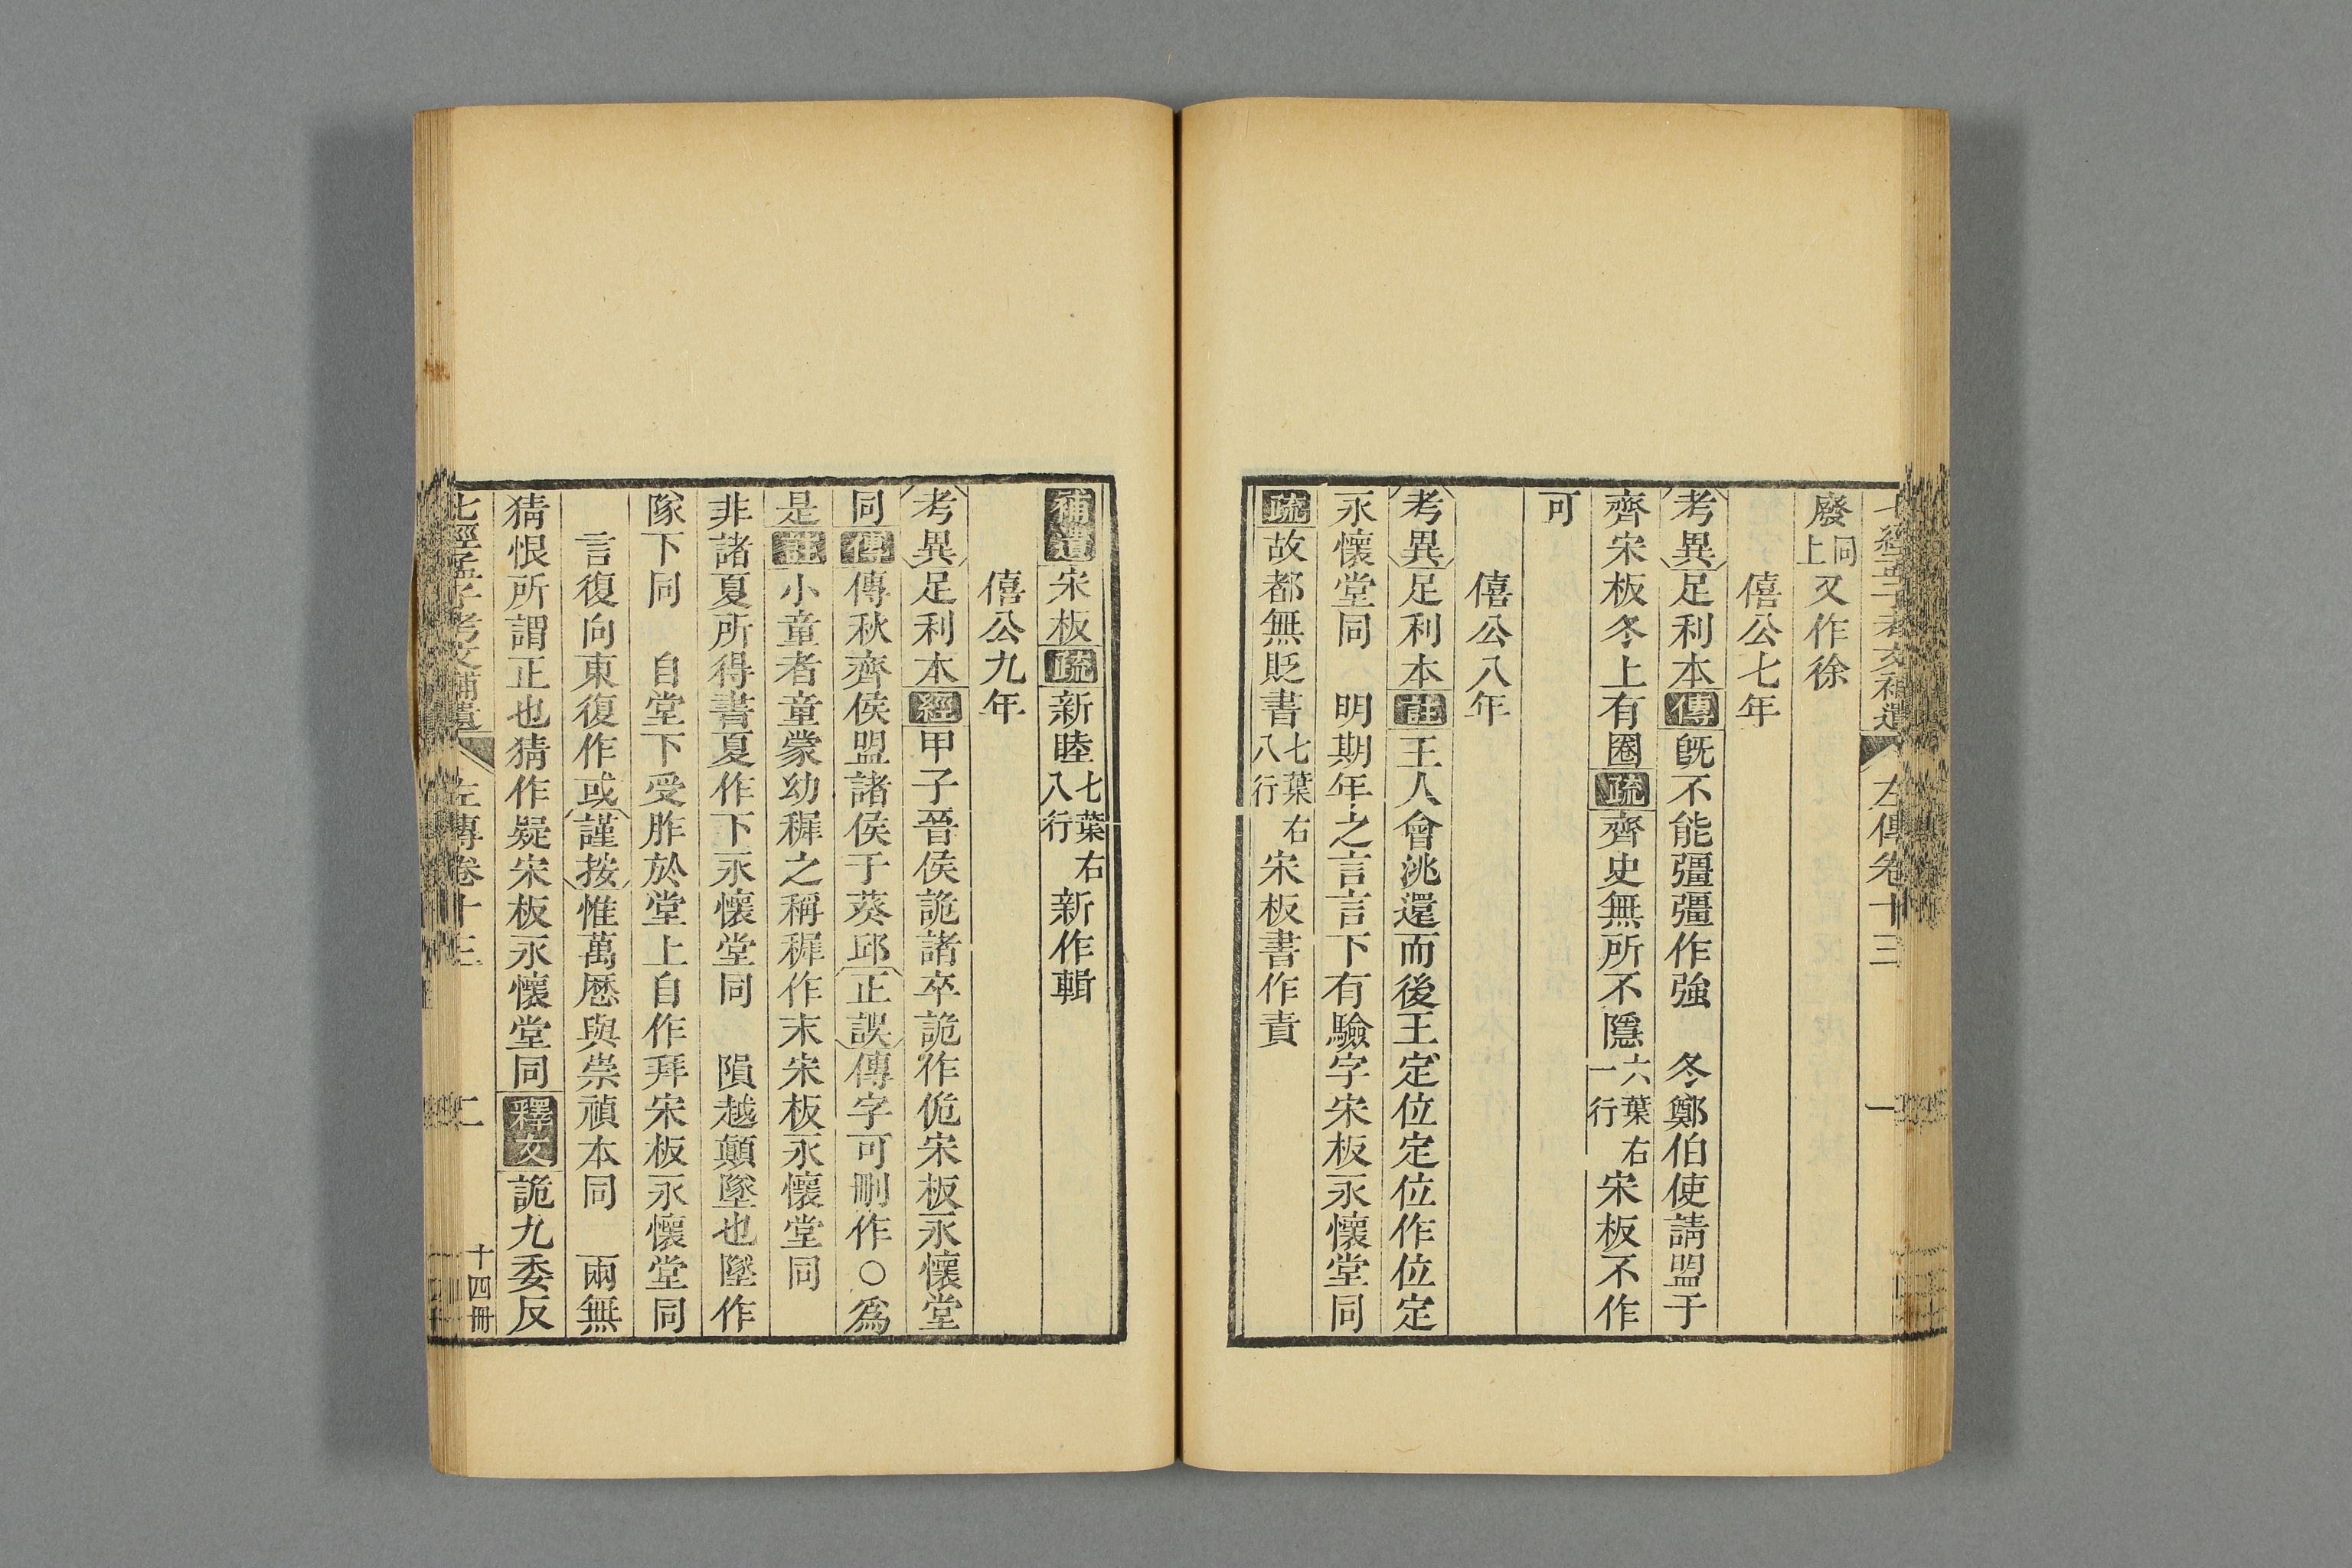 七經孟子考文補遺　左傳卷十三　一
廢同上又作徐
僖公七年
考異足利本傳旣不能彊彊作強　冬鄭伯使請盟于
齊宋板冬上有圈疏齊史無所不隱六葉右一行宋板不作
可
僖公八年
考異足利本註王人會洮還而後王定位定位作位定
永懷堂同　明期年之言言下有驗字宋板永懷堂同
疏故都無貶書七葉右八行宋板書作責
補遺宋板疏新睦七葉右八行新作輯
僖公九年
考異足利本經甲子晉侯詭諸卒詭作佹宋板永懷堂
同傳傳秋齊侯盟諸侯于葵邱正誤傳字可刪作○爲
是註小童者童蒙幼穉之稱穉作末宋板永懷堂同
非諸夏所得書夏作下永懷堂同　隕越顛墜也墜作
隊下同　自堂下受胙於堂上自作拜宋板永懷堂同
言復向東復作或謹按惟萬厯與崇禎本同　兩無
猜恨所謂正也猜作疑宋板永懷堂同釋文詭九委反
七經孟子考文補遺　左傳卷十三　二　十四冊